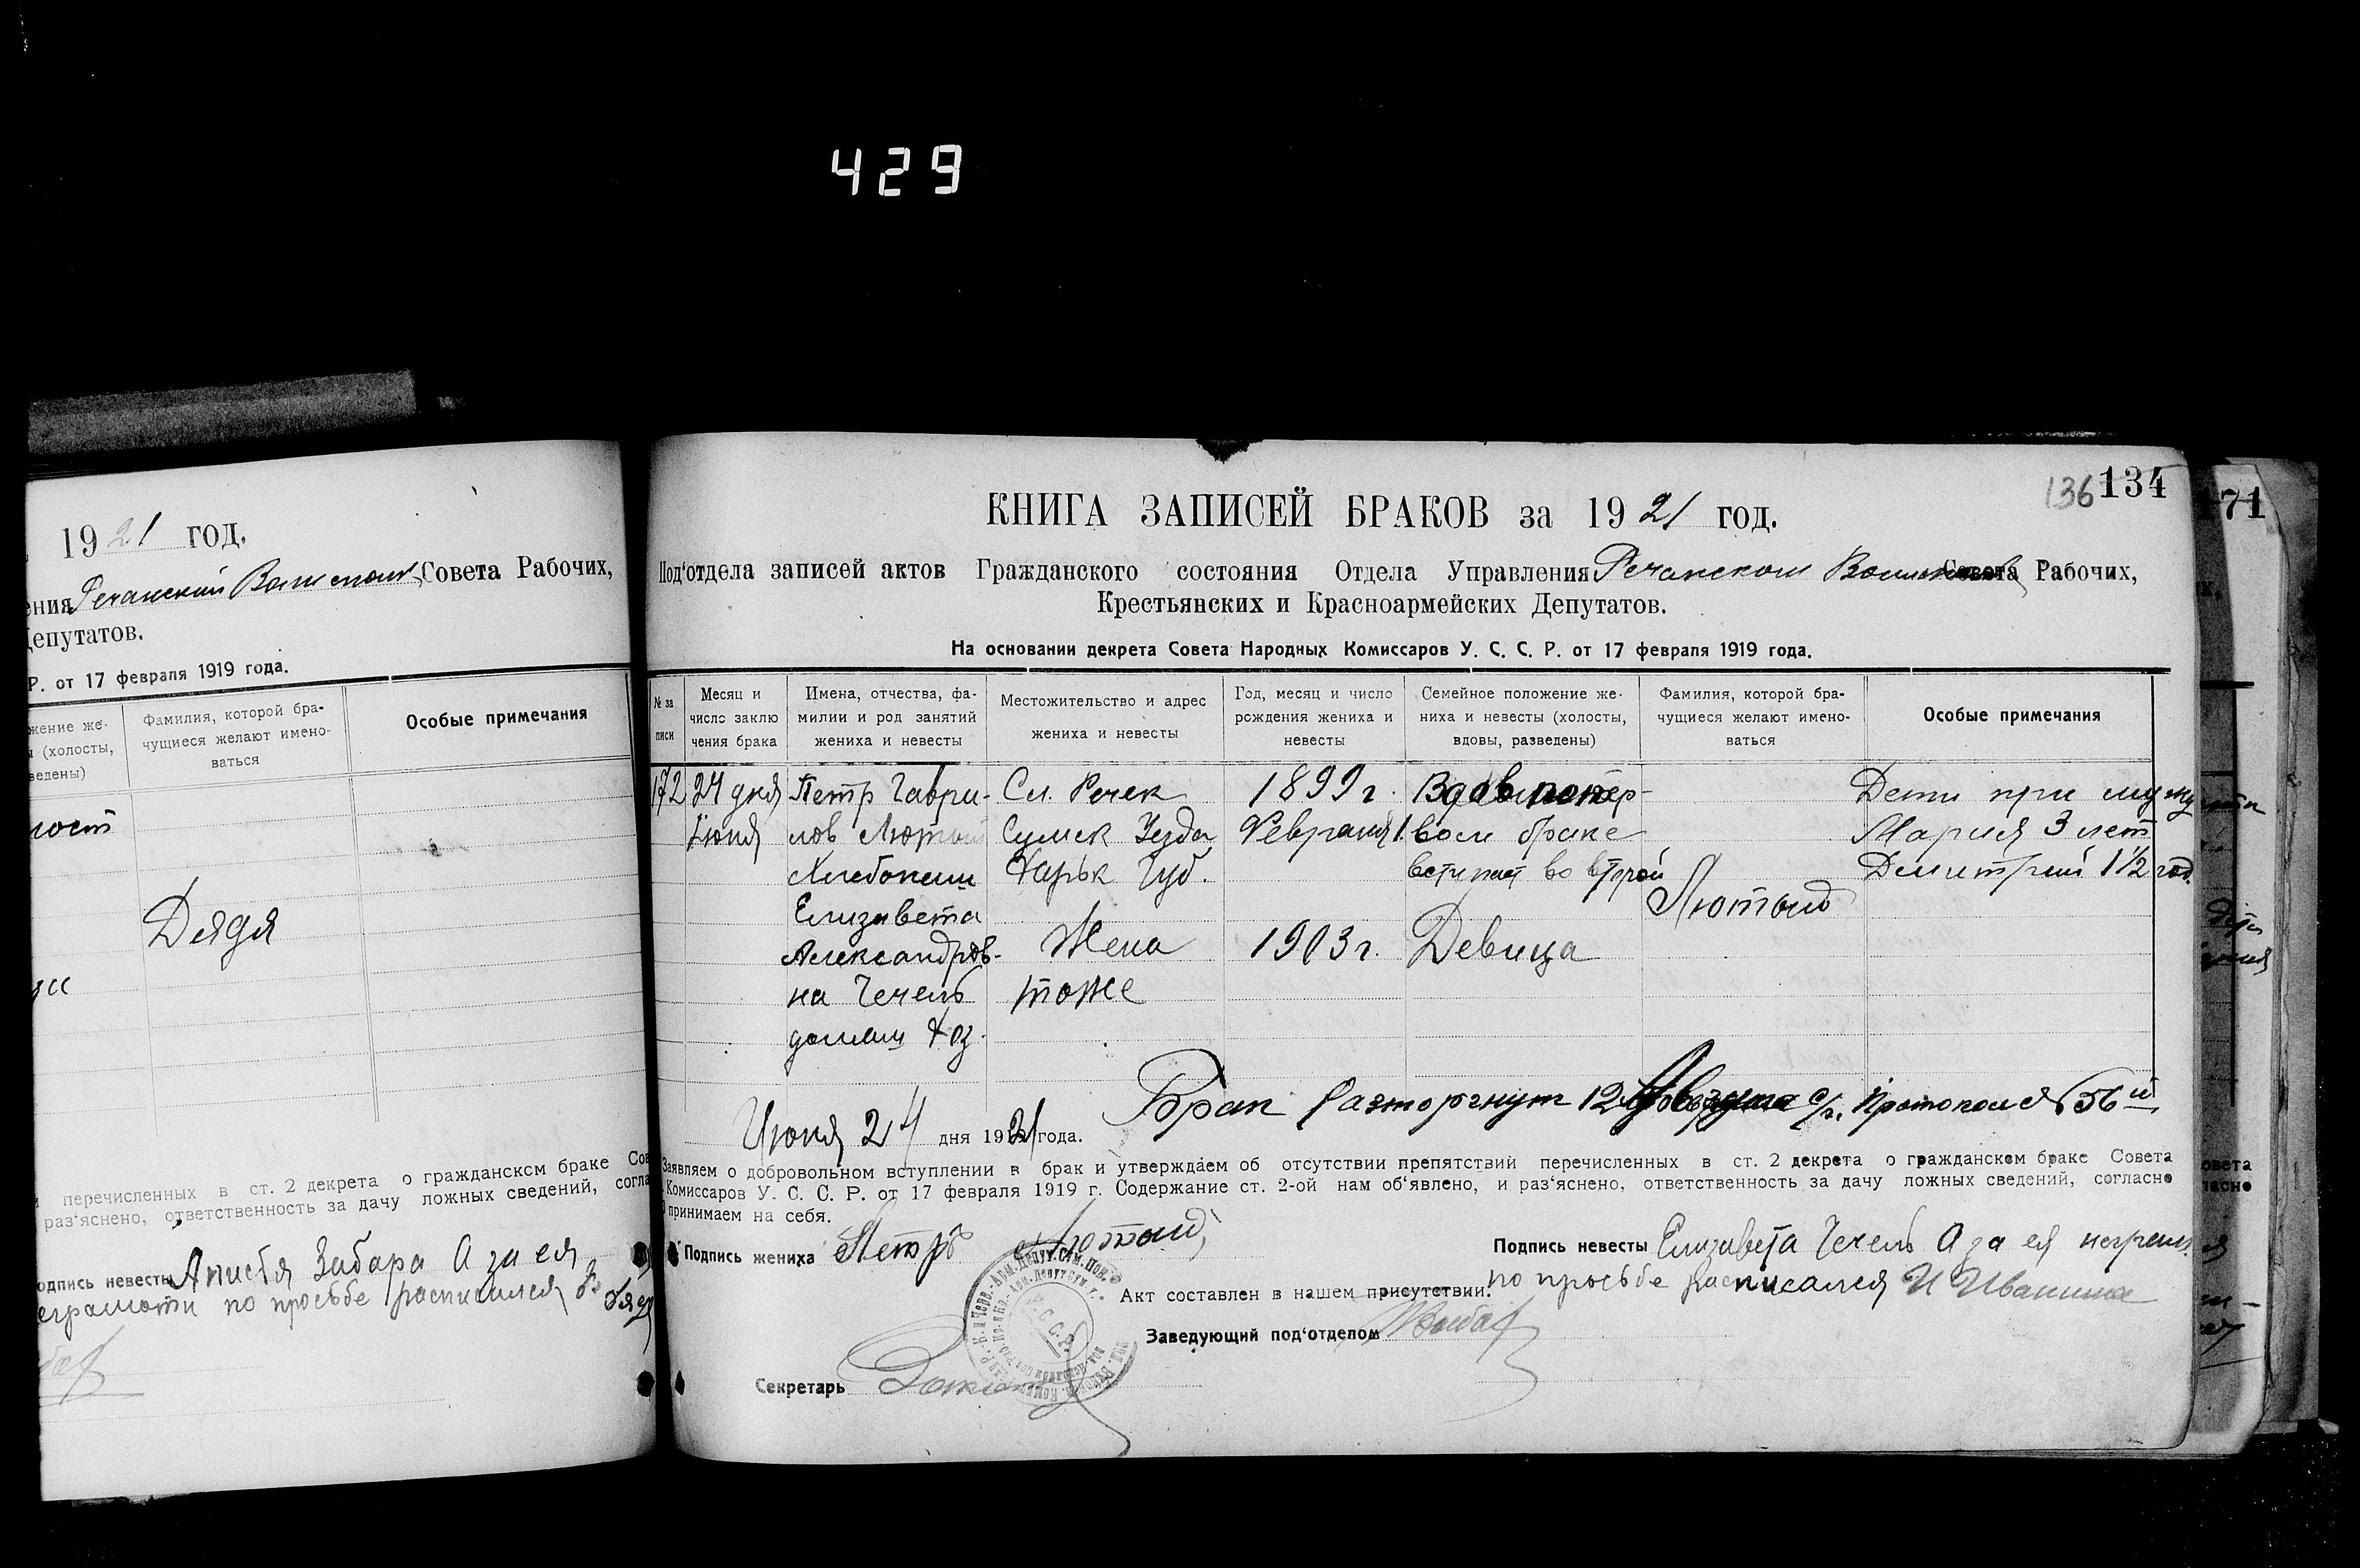 429
1921 год.
Речанский Волисполк. Совета Рабочих,
Депутатов.
Р. от 17 февраля 1919 года.
Фамилия, которой бра-
чущиеся желают имено-
ваться
Особые примечания
(холосты,
Дядя
перечисленных в ст. 2 декрета о гражданском браке
раз‘яснено, ответственность за дачу ложных сведений,
подпись невесты Забара А за ея
по просьбе расписался
136 134
171
КНИГА ЗАПИСЕЙ БРАКОВ за 1921 год.
Под‘отдела записей актов Гражданского состояния Отдела Управления Речанском Совета Рабочих,
Крестьянских и Красноармейских Депутатов.
На основании декрета Совета Народных Комиссаров У. С. С. Р. от 17 февраля 1919 года.
№ за
писи
Месяц и
число заклю
чения брака
Имена, отчества, фа-
милии и род занятий
жениха и невесты
Местожительство и адрес
жениха и невесты
Год, месяц и число
рождения жениха и
невесты
Семейное положение же-
ниха и невесты (холосты,
вдовы, разведены)
Фамилия, которой бра-
чущиеся желают имено-
ваться
Особые примечания
172 24 дня Петр Гаври- Сл. Речек 1899 г. Дети при мужу
Июня лов Лютый Сумск Уезда Февраля 1. вом браке Мария 3 лет
Хлебопаш Харьк Губ. вступает во второй Димитрий 1½ год.
Елизавета Лютый
Александров- Жена 1903 г. Девица
на Чечель тоже
домаш хоз.
Июня 24 дня 1921 года.
Брак расторгнут 12 Августа с/г. Протокол № 56й
Заявляем о добровольном вступлении в брак и утверждаем об отсутствии препятствий перечисленных в ст. 2 декрета о гражданском браке Совета
Комиссаров У. С. С. Р. от 17 февраля 1919 г. Содержание ст. 2-ой нам об‘явлено, и раз‘яснено, ответственность за дачу ложных сведений, согласно
принимаем на себя.
Подпись жениха Петръ Лютый
Подпись невесты Елизавета Чечель А за ея неграм.
по просьбе расписался И Иванина
Акт составлен в нашем присутствии:
Заведующий под‘отделом
Секретарь